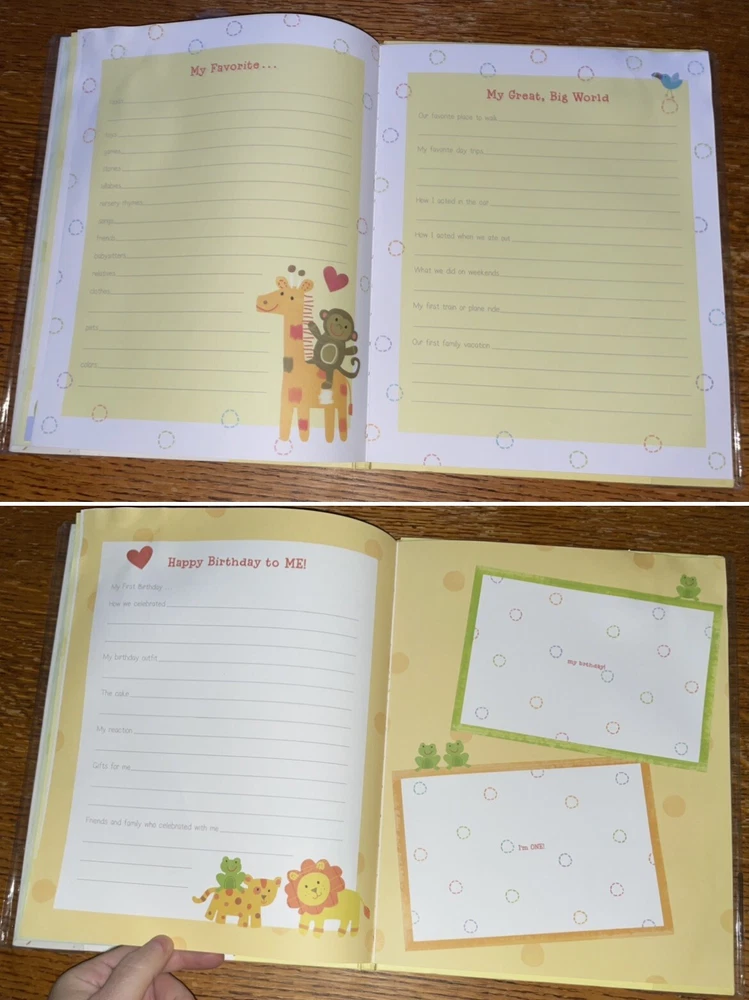 My Favorite...
toys
games
stories
videos
nursery rhymes
songs
friends
babysitters
relatives
clothes
pets
colors
My Great, Big World
Our favorite place to walk
My favorite day trips
How I acted in the car
How I acted when we ate out
What we did on weekends
My first train or plane ride
Our first family vacation
Happy Birthday to ME!
My First Birthday...
How we celebrated
My birthday outfit
The cake
My reaction
Gifts for me
Friends and family who celebrated with me
My birthday!
I'm ONE!